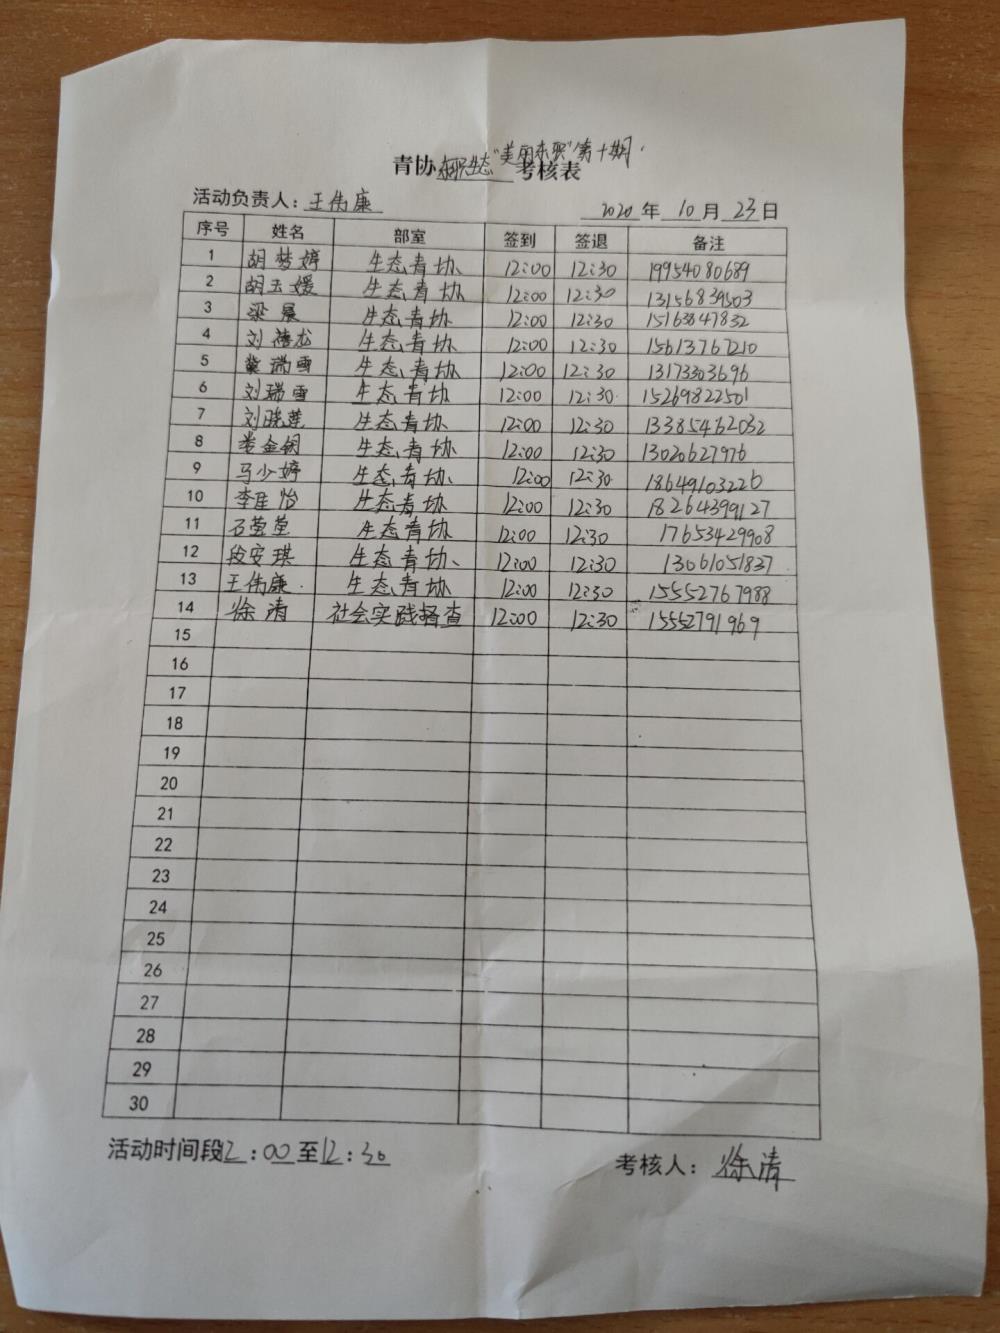 青协东职生态"美丽东职"第十期考核表
活动负责人：王伟廉 2020年10月23日
序号 姓名 部室 签到 签退 备注
1 胡梦婷 生态青协 12:00 12:30 19954080689
2 胡玉媛 生态青协 12:00 12:30 13156839503
3 梁晨 生态青协 12:00 12:30 15163847832
4 刘禧龙 生态青协 12:00 12:30 15613767210
5 冀瑞雪 生态青协 12:00 12:30 13173303696
6 刘瑞雪 生态青协 12:00 12:30 15269822501
7 刘晓莲 生态青协 12:00 12:30 13385462032
8 娄金钢 生态青协 12:00 12:30 13020627976
9 马少婷 生态青协 12:00 12:30 18649103226
10 李佳怡 生态青协 12:00 12:30 18264399127
11 石莹莹 生态青协 12:00 12:30 17653429908
12 段安琪 生态青协 12:00 12:30 13061051837
13 王伟廉 生态青协 12:00 12:30 15552767988
14 徐清 社会实践督查 12:00 12:30 15552791969
15
16
17
18
19
20
21
22
23
24
25
26
27
28
29
30
活动时间段12:00至12:30 考核人：徐清